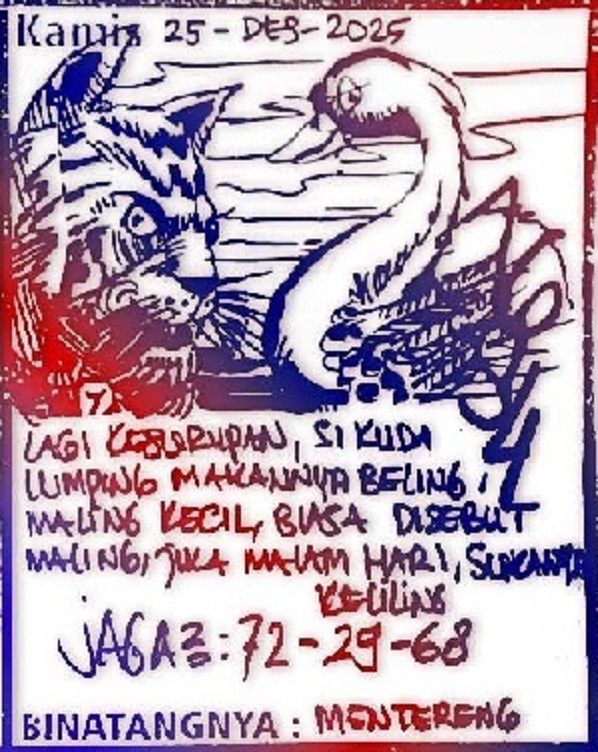 Kamis 25-DES-2025
7
LAGI KESURUPAN, SI KUDA
LUMPING MAKANNYA BELING,
MALING KECIL, BIASA DISEBUT
MALING, JIKA MALAM HARI, SUKANYA
KELILING
JAGA2=: 72-29-68
BINATANGNYA : MENTERENG